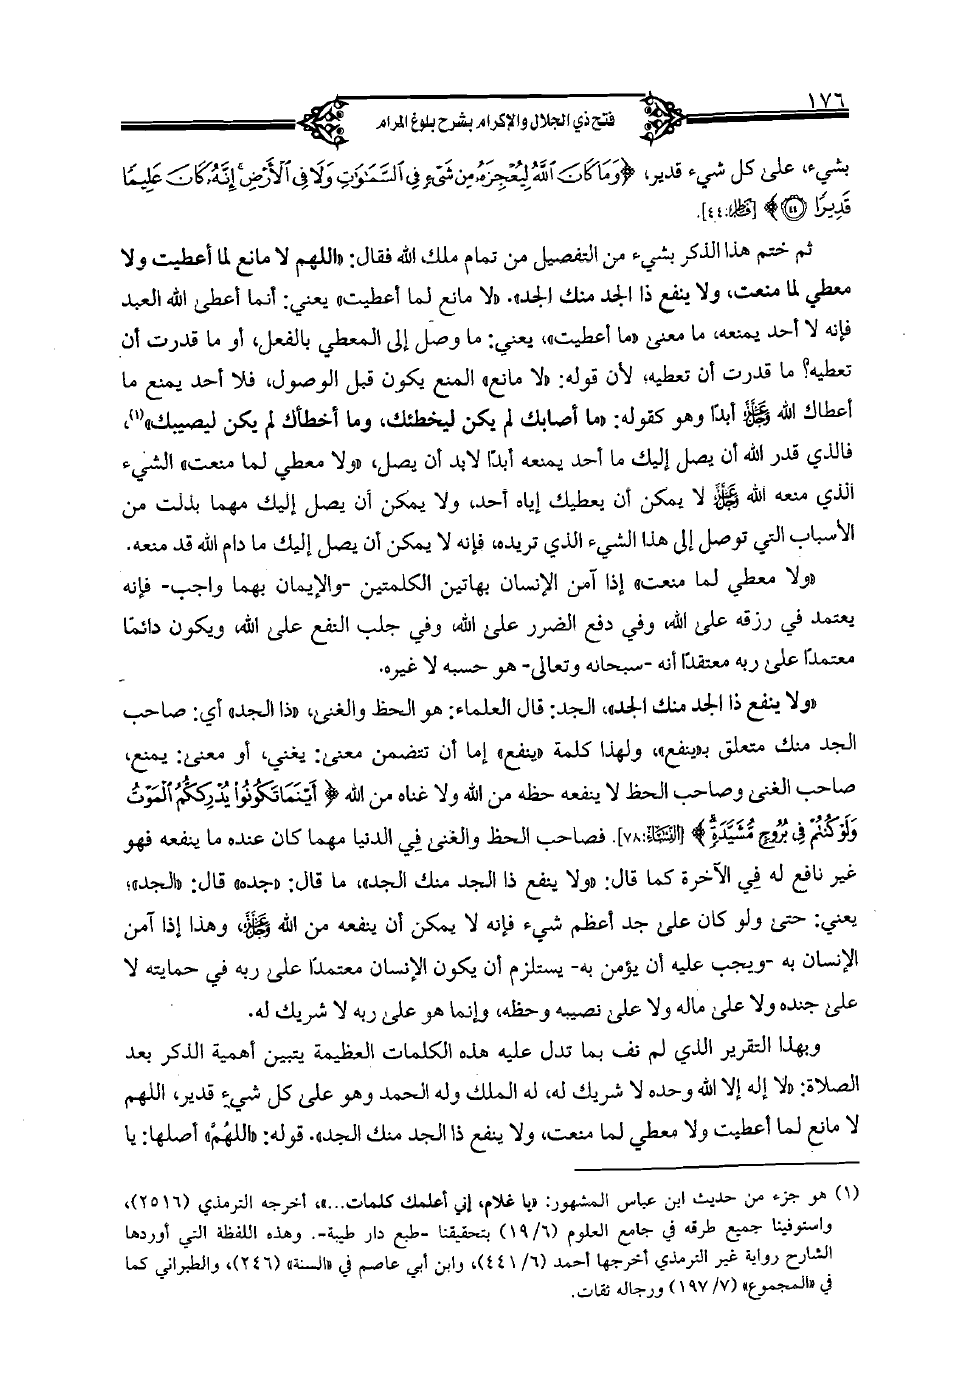 ١٧٦
فتح ذي الجلال والإكرام بشرح بلوغ المرام
بشيء، على كل شيء قدير، ﴿وَمَا كَانَ ٱللَّهُ لِيُعْجِزَهُۥ مِن شَىْءٍ فِى ٱلسَّمَٰوَٰتِ وَلَا فِى ٱلْأَرْضِ ۚ إِنَّهُۥ كَانَ عَلِيمًا
قَدِيرًا ﴿٤٤﴾﴾ [فاطر:٤٤].
ثم ختم هذا الذكر بشيء من التفصيل من تمام ملك الله فقال: «اللهم لا مانع لما أعطيت ولا
معطي لما منعت، ولا ينفع ذا الجد منك الجد». «لا مانع لما أعطيت» يعني: أنما أعطى الله العبد
فإنه لا أحد يمنعه، ما معنى «ما أعطيت»، يعني: ما وصل إلى المعطي بالفعل، أو ما قدرت أن
تعطيه؟ ما قدرت أن تعطيه؛ لأن قوله: «لا مانع» المنع يكون قبل الوصول، فلا أحد يمنع ما
أعطاك الله ﷻ أبدًا وهو كقوله: «ما أصابك لم يكن ليخطئك، وما أخطأك لم يكن ليصيبك»(١)،
فالذي قدر الله أن يصل إليك ما أحد يمنعه أبدًا لابد أن يصل، «ولا معطي لما منعت» الشيء
الذي منعه الله ﷻ لا يمكن أن يعطيك إياه أحد، ولا يمكن أن يصل إليك مهما بذلت من
الأسباب التي توصل إلى هذا الشيء الذي تريده، فإنه لا يمكن أن يصل إليك ما دام الله قد منعه.
«ولا معطي لما منعت» إذا آمن الإنسان بهاتين الكلمتين -والإيمان بهما واجب- فإنه
يعتمد في رزقه على الله، وفي دفع الضرر على الله، وفي جلب النفع على الله، ويكون دائمًا
معتمدًا على ربه معتقدًا أنه -سبحانه وتعالى- هو حسبه لا غيره.
«ولا ينفع ذا الجد منك الجد»، الجد: قال العلماء: هو الحظ والغنى، «ذا الجد» أي: صاحب
الجد منك متعلق بـ«ينفع»، ولهذا كلمة «ينفع» إما أن تتضمن معنى: يغني، أو معنى: يمنع،
صاحب الغنى وصاحب الحظ لا ينفعه حظه من الله ولا غناه من الله ﴿أَيْنَمَا تَكُونُوا۟ يُدْرِككُّمُ ٱلْمَوْتُ
وَلَوْ كُنتُمْ فِى بُرُوجٍ مُّشَيَّدَةٍ﴾ [النساء:٧٨]. فصاحب الحظ والغنى فِي الدنيا مهما كان عنده ما ينفعه فهو
غير نافع له فِي الآخرة كما قال: «ولا ينفع ذا الجد منك الجد»، ما قال: «جده» قال: «الجد»؛
يعني: حتى ولو كان على جد أعظم شيء فإنه لا يمكن أن ينفعه من الله ﷻ، وهذا إذا آمن
الإنسان به -ويجب عليه أن يؤمن به- يستلزم أن يكون الإنسان معتمدًا على ربه في حمايته لا
على جنده ولا على ماله ولا على نصيبه وحظه، وإنما هو على ربه لا شريك له.
وبهذا التقرير الذي لم نف بما تدل عليه هذه الكلمات العظيمة يتبين أهمية الذكر بعد
الصلاة: «لا إله إلا الله وحده لا شريك له، له الملك وله الحمد وهو على كل شيءٍ قدير، اللهم
لا مانع لما أعطيت ولا معطي لما منعت، ولا ينفع ذا الجد منك الجد». قوله: «اللهُمَّ» أصلها: يا
(١) هو جزء من حديث ابن عباس المشهور: «يا غلام، إني أعلمك كلمات...»، أخرجه الترمذي (٢٥١٦)،
واستوفينا جميع طرقه في جامع العلوم (١٩/٦) بتحقيقنا -طبع دار طيبة-. وهذه اللفظة التي أوردها
الشارح رواية غير الترمذي أخرجها أحمد (٤٤١/٦)، وابن أبي عاصم في «السنة» (٢٤٦)، والطبراني كما
في «المجموع» (١٩٧/٧) ورجاله ثقات.